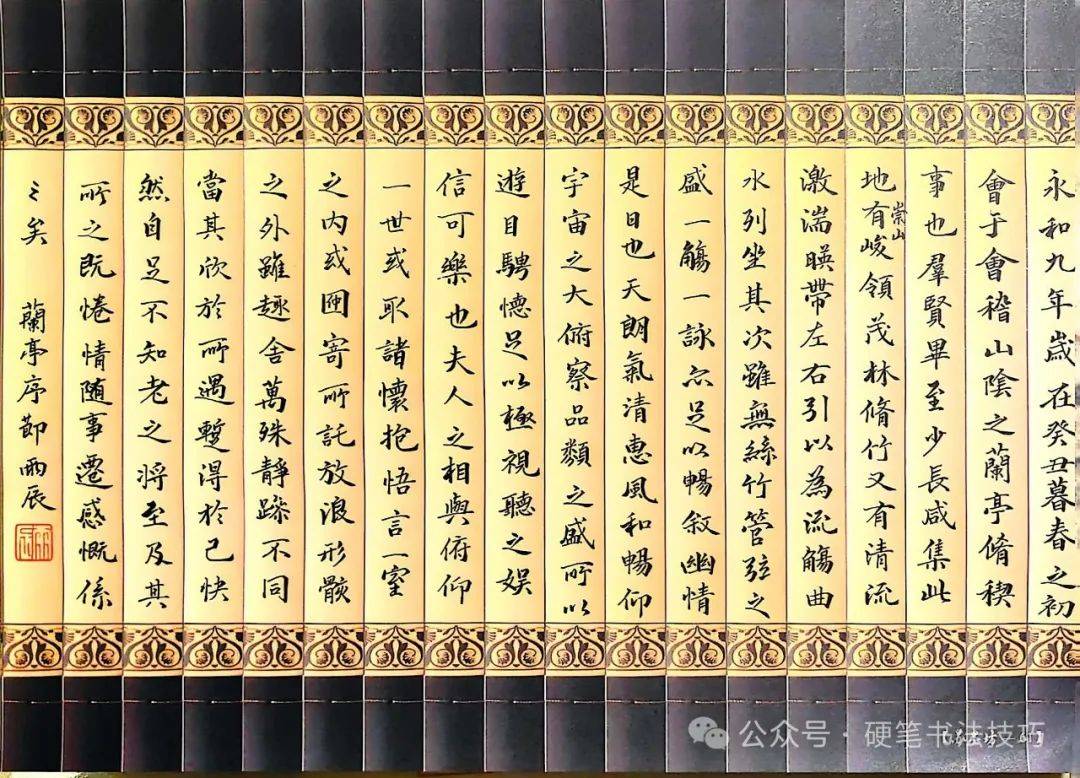 永和九年歲在癸丑暮春之初
會于會稽山陰之蘭亭脩稧
事也羣賢畢至少長咸集此
地有崇山峻領茂林脩竹又有清流
激湍暎帶左右引以為流觴曲
水列坐其次雖無絲竹管弦之
盛一觴一詠亦足以暢敘幽情
是日也天朗氣清惠風和暢仰
宇宙之大俯察品類之盛所以
遊目騁懷足以極視聽之娛
信可樂也夫人之相與俯仰
一世或取諸懷抱悟言一室
之內或因寄所託放浪形骸
之外雖趣舍萬殊靜躁不同
當其欣於所遇暫得於己快
然自足不知老之將至及其
所之既惓情随事遷感慨係
之矣 蘭亭序節雨辰
公众号·硬笔书法技巧